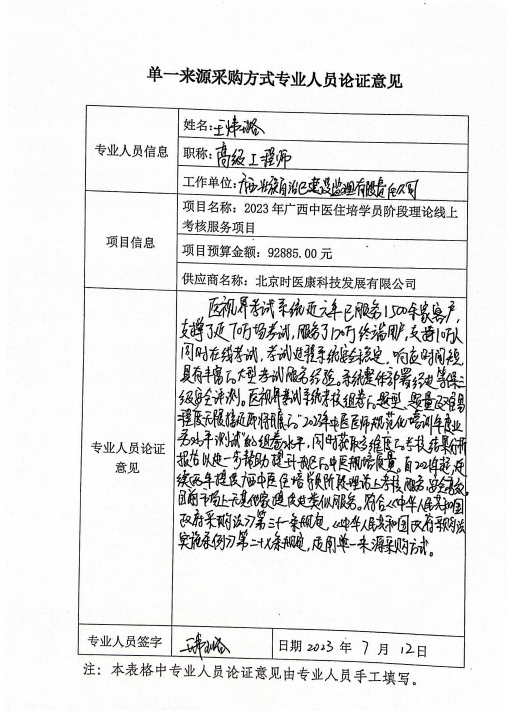 单一来源采购方式专业人员论证意见
专业人员信息
姓名：王炜璐
职称：高级工程师
工作单位：广西壮族自治区建设监理有限责任公司
项目信息
项目名称：2023年广西中医住培学员阶段理论线上
考核服务项目
项目预算金额：92885.00 元
供应商名称：北京时医康科技发展有限公司
专业人员论证
意见
医视界考试系统近三年已服务1500余家客户，
支撑了近70万场考试，服务了170万终端用户，支持10万人
同时在线考试，考试过程系统安全稳定，响应时间短
具有丰富的大型考试服务经验。系统整体部署经过等保三
级安全评测。医视界考试系统考核组卷的题型、题量及容易
程度
"2023年中医医师规范化培训年度业
务水平测试"的组卷水平，同时获取多维度的考核结果分析
报告以进一步帮助提升我区的中医规培质量。自2021年起连
续两年提供广西中医住培学员阶段理论线上考核服务，安全稳定。
目前市场上无其他家提供此类似服务。符合《中华人民共和国
政府采购法》第三十一条规定，《中华人民共和国政府采购法
实施条例》第二十七条规定，适用单一来源采购方式。
专业人员签字
王炜璐
日期 2023 年 7 月 12日
注：本表格中专业人员论证意见由专业人员手工填写。